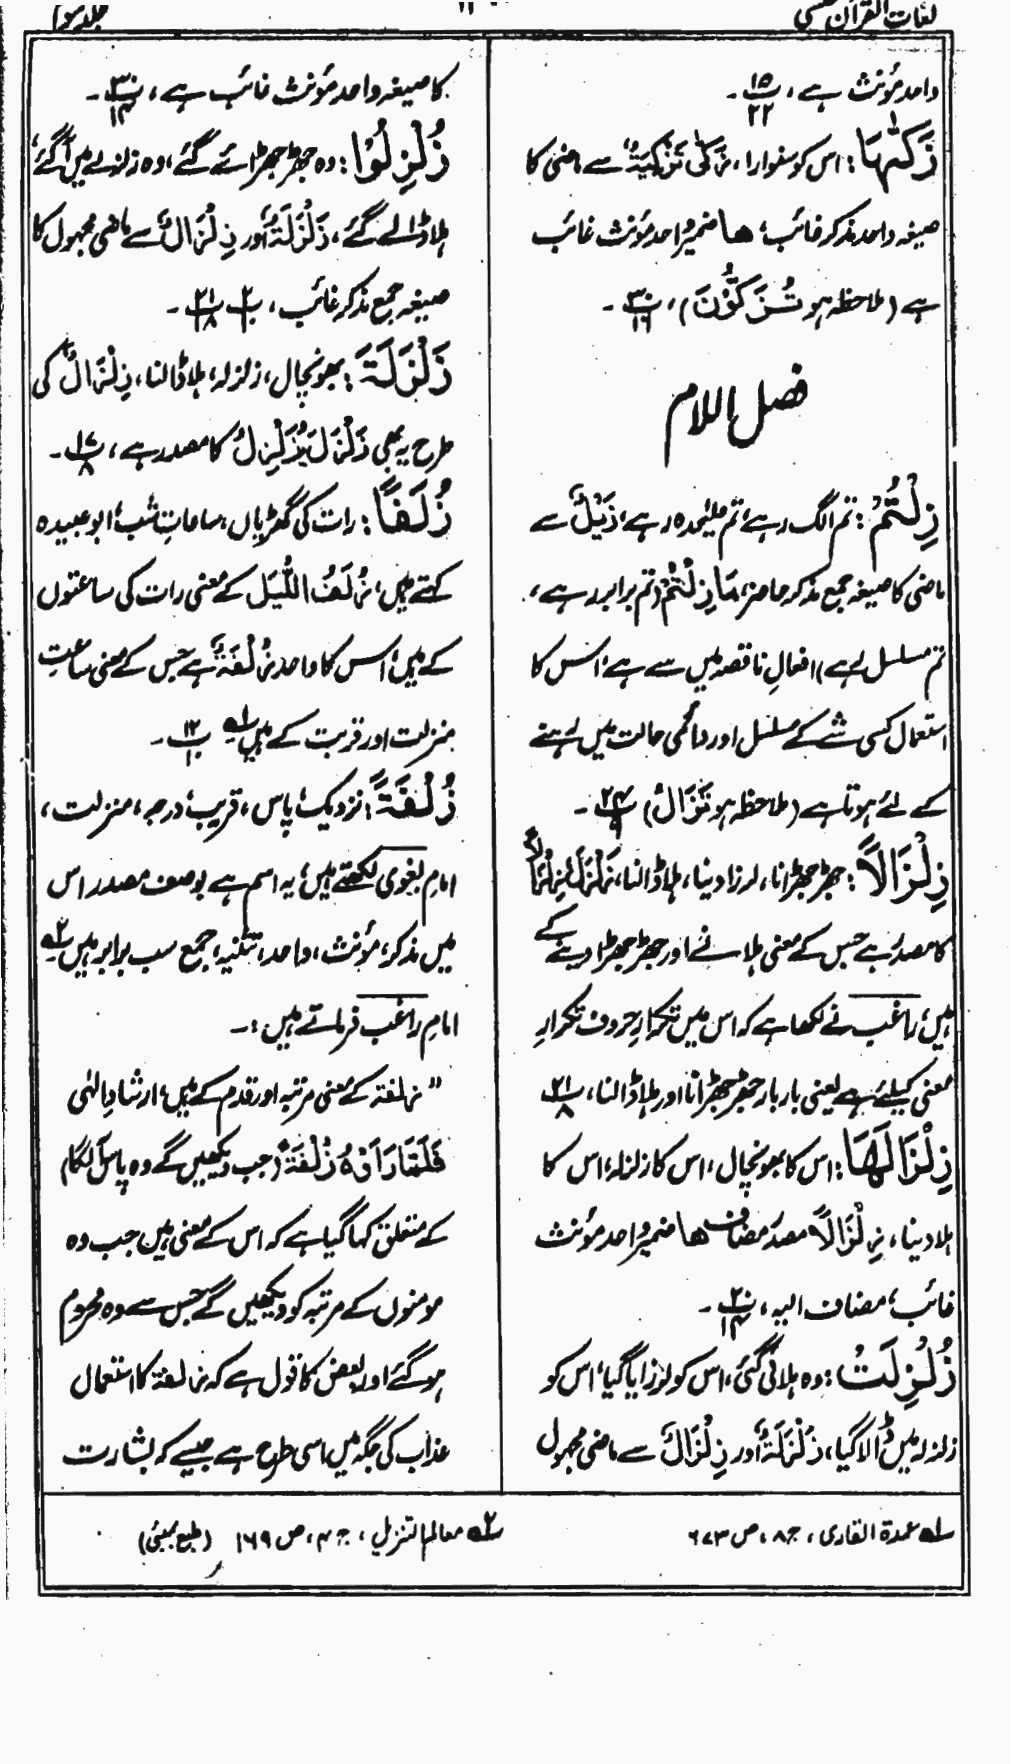 لغات القرآن
جلد سوم
واحد مؤنث ہے، پ ۱۵ / ۲۲ ۔
زَكّٰىهَا: اس کو سنوارا، زَكّٰى تَزْكِيَةٌ سے ماضی کا
صیغہ واحد مذکر غائب، ها ضمیر واحد مؤنث غائب
ہے (ملاحظہ ہو تُزَكُّوْنَ)، پ ۳۰ / ۱۶ ۔
فصل اللام
زِلْتُمْ: تم الگ رہے، تم علیحدہ رہے، زَيْلٌ سے
ماضی کا صیغہ جمع مذکر حاضر، مَا زِلْتُمْ (تم برابر رہے،
تم مسلسل رہے) افعالِ ناقصہ میں سے ہے، اس کا
استعمال کسی شے کے مسلسل اور دائمی حالت میں رہنے
کے لئے ہوتا ہے (ملاحظہ ہو تَزَالُ) پ ۲۴ / ۹ ۔
زِلْزَالًا: جھڑجھڑانا، لرزا دینا، ہلا ڈالنا، زَلْزَلَ يُزَلْزِلُ
کا مصدر ہے جس کے معنی ہلانے اور جھڑجھڑا دینے کے
ہیں، راغب نے لکھا ہے کہ اس میں تکرارِ حروف تکرارِ
معنی کیلئے ہے یعنی بار بار جھڑجھڑانا اور ہلا ڈالنا، پ ۲۱ / ۱۸
زِلْزَالَهَا: اس کا بھونچال، اس کا زلزلہ، اس کا
ہلا دینا، زِلْزَالًا مصدر مضاف ها ضمیر واحد مؤنث
غائب، مضاف الیہ، پ ۳۰ / ۱۴ ۔
زُلْزِلَتْ: وہ ہلائی گئی، اس کو لرزایا گیا، اس کو
زلزلہ میں ڈالا گیا، زَلْزَلَةٌ اور زِلْزَالٌ سے ماضی مجہول
کا صیغہ واحد مؤنث غائب ہے، پ ۳۰ / ۱۴ ۔
زُلْزِلُوْا: وہ جھڑجھڑائے گئے، وہ زلزلے میں آگئے،
ہلا ڈالے گئے، زَلْزَلَةٌ اور زِلْزَالٌ سے ماضی مجہول کا
صیغہ جمع مذکر غائب، پ ۲ / ۱۰ پ ۲۱ / ۱۸ ۔
زَلْزَلَةَ: بھونچال، زلزلہ، ہلا ڈالنا، زِلْزَالٌ کی
طرح یہ بھی زَلْزَلَ يُزَلْزِلُ کا مصدر ہے، پ ۱۷ / ۸ ۔
زُلَفًا: رات کی گھڑیاں، ساعاتِ شب، ابو عبیدہ
کہتے ہیں، زُلَفُ اللَّيْل کے معنی رات کی ساعتوں
کے ہیں، اس کا واحد زُلْفَةٌ ہے جس کے معنی ساعت
منزلت اور قربت کے ہیں ۱ہ پ ۱۲ / ۱۰ ۔
زُلْفَةً: نزدیک، پاس، قریب، درجہ، منزلت،
امام بغوی لکھتے ہیں، یہ اسم ہے بوصف مصدر اس
میں مذکر، مؤنث، واحد، تثنیہ، جمع سب برابر ہیں ۲ہ
امام راغب فرماتے ہیں:۔
"زلفة کے معنی مرتبہ اور تقدم کے ہیں، ارشادِ الٰہی
فَلَمَّا رَاَوْهُ زُلْفَةً (جب دیکھیں گے وہ پاس آ لگا)
کے متعلق کہا گیا ہے کہ اس کے معنی ہیں جب وہ
مومنوں کے مرتبہ کو دیکھیں گے جس سے وہ محروم
ہو گئے اور بعض کا قول ہے کہ زلفة کا استعمال
عذاب کی جگہ میں اسی طرح ہے جیسے کہ بشارت
۱ہ عمدۃ القاری، ج ۸، ص ۶۷۳
۲ہ معالم التنزیل، ج ۴، ص ۱۶۹ (طبع بمبئی)